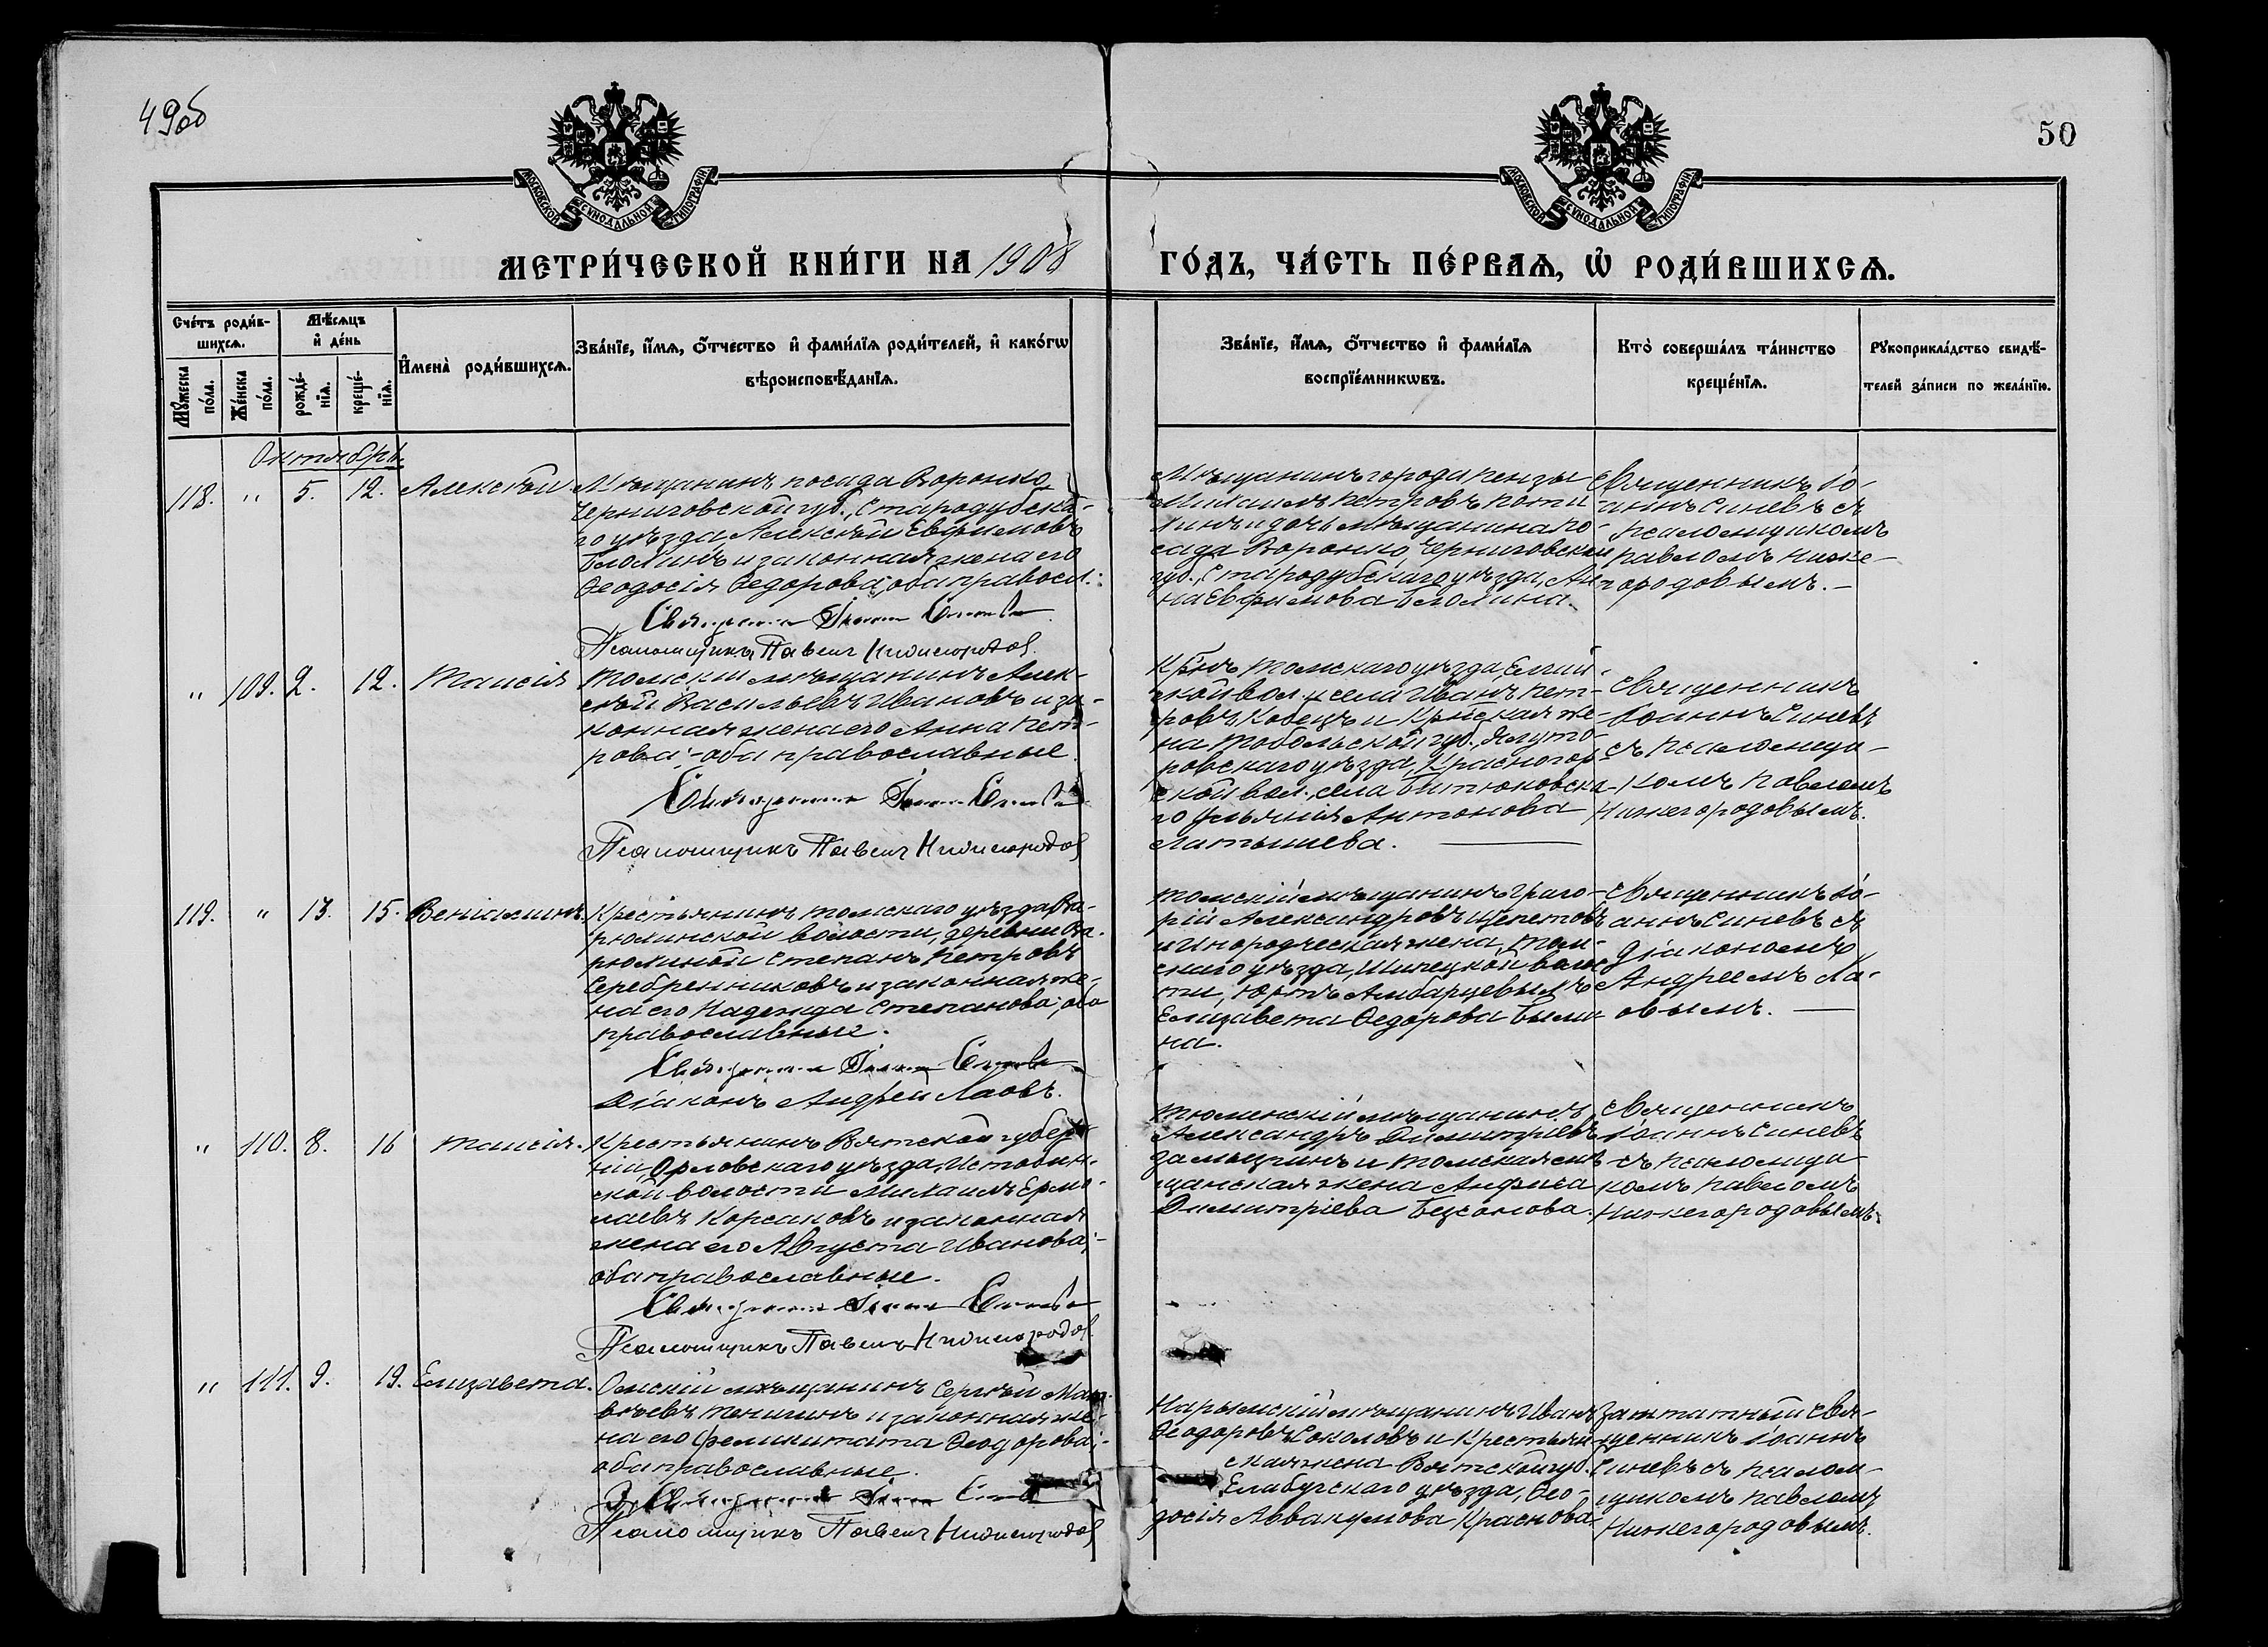 49об
50
МОСКОВСКОЙ СѴНОДАЛЬНОЙ ТИПОГРАФІИ
МОСКОВСКОЙ СѴНОДАЛЬНОЙ ТИПОГРАФІИ
МЕТРИ́ЧЕСКОЙ КНИ́ГИ НА 1908 ГО́ДЪ, ЧА́СТЬ ПЕ́РВАѦ, Ѡ҆ РОДИ́ВШИХСѦ.
Сче́тъ роди́в-
шихсѧ.
Мꙋ́жеска по́ла.
Же́нска по́ла.
Мѣ́сѧцъ
и҆ де́нь
рожде́-
нїѧ.
креще́-
нїѧ.
И҆мена̀ роди́вшихсѧ.
Зва́нїе, и҆́мѧ, ѻ҆́тчество и҆ фами́лїѧ роди́телей, и҆ како́гѡ
вѣроисповѣ́данїѧ.
Зва́нїе, и҆́мѧ, ѻ҆́тчество и҆ фами́лїѧ
воспрїе́мникѡвъ.
Кто̀ соверша́лъ та́инство
креще́нїѧ.
Рꙋкоприкла́дство свидѣ́-
телей за́писи по жела́нїю.
Октябрь.
118. " 5. 12. Алексѣй
Мѣщанинъ посада Воронка
Черниговской губ., Стародубска-
го уѣзда Алексѣй Евфимовъ
Блохинъ и законная жена его
Ѳеодосія Ѳедорова; оба правосл.:
Священникъ Іоаннъ Синевъ
Псаломщикъ Павелъ Нижегородовъ
Мѣщанинъ города Пензы
Михаилъ Петровъ
и дочь мѣщанина по-
сада Воронка, Черниговской
губ., Стародубскаго уѣзда, Ан-
на Евфимова Блохина.
Священникъ Іо-
аннъ Синевъ съ
псаломщикомъ
Павломъ Ниже-
городовымъ. –
" 109. 2. 12. Таисія
Томскій мѣщанинъ Алек-
сѣй Васильевъ Ивановъ и за-
конная жена его Анна Пет-
рова; – оба православные.
Священникъ Іоаннъ Синевъ
Псаломщикъ Павелъ Нижегородовъ
Кр-нъ Томскаго уѣзда, Елгай-
ской вол. и села Иванъ Пет-
ровъ и Кр-нская же-
на Тобольской губ., Ялуто-
ровскаго уѣзда, Красногор-
ской вол., села Битюковска-
го Антонова
Латышева.
Священникъ
Іоаннъ Синевъ
съ псаломщи-
комъ Павломъ
Нижегородовымъ.
119. " 13. 15. Веніаминъ.
Крестьянинъ Томскаго уѣзда, Ва-
рюхинской волости, деревни Ва-
рюхиной Степанъ Петровъ
Серебренниковъ и законная же-
на его Надежда Степанова; оба
православные.
Священникъ Іоаннъ Синевъ
Діаконъ Андрей Лаовъ.
Томскій мѣщанинъ Григо-
рій Александровъ Щепетовъ
и Инородческая жена, Том-
скаго уѣзда, волос-
ти, юртъ Амбарцевыхъ
Елизавета Ѳедорова Были-
на.
Священникъ Іо-
аннъ Синевъ съ
Діакономъ
Андреемъ Ла-
овымъ. –
" 110. 8. 16 Таисія.
Крестьянинъ Вятской губер-
ніи Орловскаго уѣзда, Истобен-
ской волости Михаилъ Ермо-
лаевъ Корсаковъ и законная
жена его Августа Иванова; –
оба православные.
Священникъ Іоаннъ Синевъ
Псаломщикъ Павелъ Нижегородовъ
Тюменскій мѣщанинъ
Александръ Димитріевъ
Замызгинъ и Томская мѣ-
щанская жена Анфиса
Димитріева Безсонова.
Священникъ
Іоаннъ Синевъ
съ псаломщи-
комъ Павломъ
Нижегородовымъ.
" 111. 9. 19. Елизавета.
Омскій мѣщанинъ Сергѣй Мат-
вѣевъ и законная же-
на его Фелицитата Ѳеодорова; –
оба православные.
З. Священникъ Іоаннъ Синевъ
Псаломщикъ Павелъ Нижегородовъ
Нарымскій мѣщанинъ Иванъ
Ѳеодоровъ Соколовъ и Крестьян-
ская жена Вятской губ.
Елабугскаго уѣзда, Ѳео-
досія Аввакумова Краснова.
Заштатный Свя-
щенникъ Іоаннъ
Синевъ съ псалом-
щикомъ Павломъ
Нижегородовымъ.